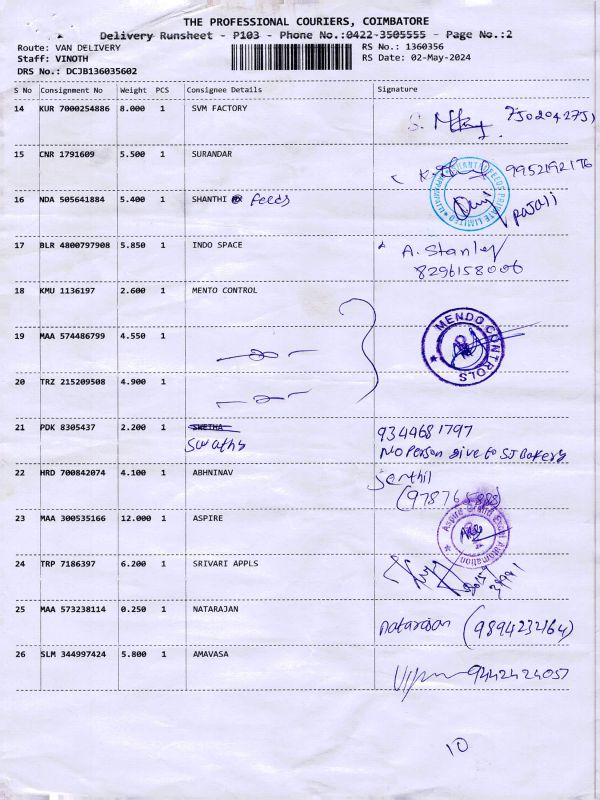 THE PROFESSIONAL COURIERS, COIMBATORE
Delivery Runsheet - P103 - Phone No.:0422-3505555 - Page No.:2
Route: VAN DELIVERY
RS No.: 1360356
Staff: VINOTH
RS Date: 02-May-2024
DRS No.: DCJB136035602
S No Consignment No Weight PCS Consignee Details Signature
14 KUR 7000254886 8.000 1 SVM FACTORY
15 CNR 1791609 5.500 1 SURANDAR 9952192176
16 NDA 505641884 5.400 1 SHANTHI Feeds
17 BLR 4800797908 5.850 1 INDO SPACE A. Stanley
8296158006
18 KMU 1136197 2.600 1 MENTO CONTROL
MENDO CONTROLS
19 MAA 574486799 4.550 1
20 TRZ 215209508 4.900 1
21 PDK 8305437 2.200 1 SWETHA 9344681797
Swathy NO Person give to SJ Bakery
22 HRD 700842074 4.100 1 ABHNINAV Senthil
23 MAA 300535166 12.000 1 ASPIRE
24 TRP 7186397 6.200 1 SRIVARI APPLS
25 MAA 573238114 0.250 1 NATARAJAN natarajan (9894232164)
26 SLM 344997424 5.800 1 AMAVASA 9442424057
10